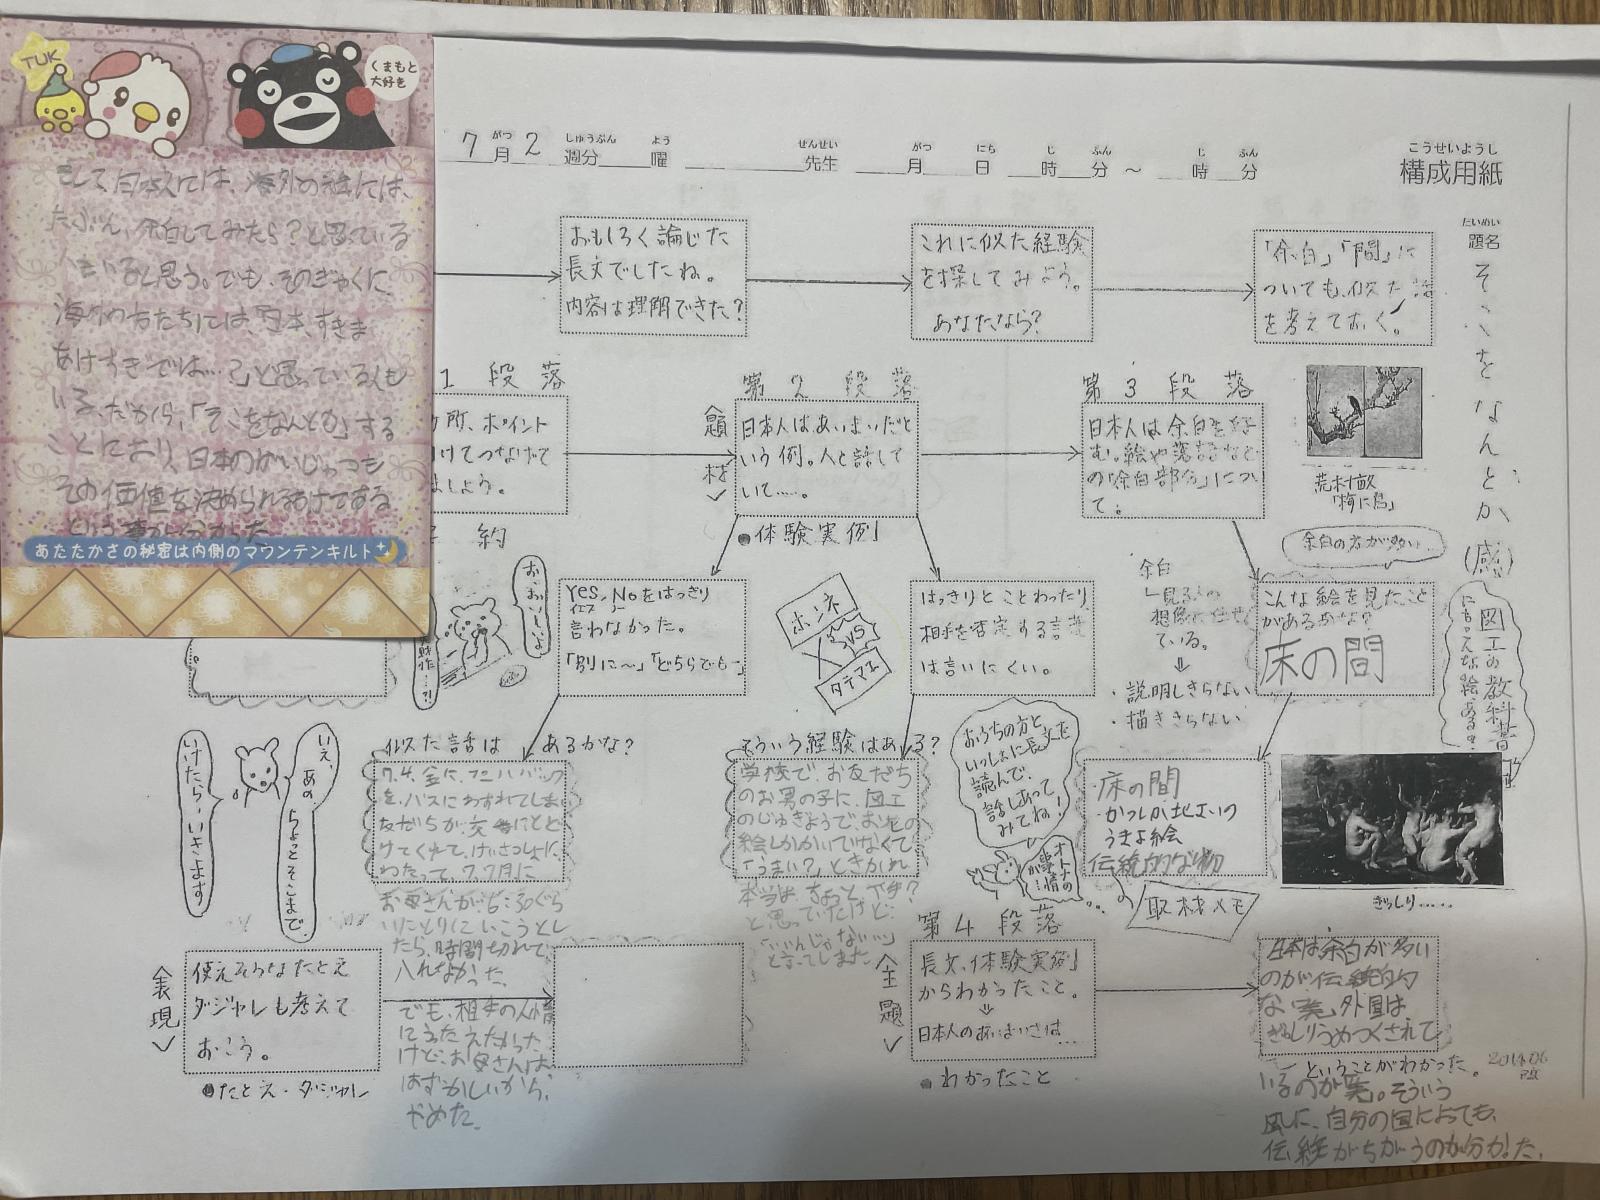 TUK
くまもと
大好き
そして日本人には、海外の絵には、
たぶん、余白してみたら?と思っている
人もいると思う。でも、そのぎゃくに、
海外の方たちには、日本、すきま
あけすぎでは…?と思っている人も
いる。だから、「そこをなんとか」する
ことにより、日本のげいじゅつも
その価値を決められるわけである
という事が分かった
あたたかさの秘密は内側のマウンテンキルト
7月2週分 曜 先生 月 日 時 分 ~ 時 分
がつ しゅうぶん よう せんせい がつ にち じ ふん じ ふん
こうせいようし
構成用紙
だいめい
題名
そこをなんとか(感)
「余白」「間」に
ついても、似た話
を考えておく。
これに似た経験
を探してみよう。
あなたなら?
おもしろく論じた
長文でしたね。
内容は理解できた?
1段落
所、ポイント
けてつなげて
ましょう。
約
第2段落
〈題材〉
日本人はあいまいだと
いう例。人と話して
いて……。
●体験実例」
第3段落
日本人は余白を好
む。絵や落語など
の「余白部分」につい
て。
荒木村敏
「梅に鳥」
余白の方が多い…
図工の教科書
にもこんな絵、ある?
こんな絵を見たこと
があるかな?
床の間
余白
見る人の
想像に任せ
ている。
⇓
・説明しきらない
・描ききらない
Yes、Noをはっきり
イエス ノー
言わなかった。
「別に〜」「どちらでも〜」
ホンネ
VS
タテマエ
はっきりとことわったり、
相手を否定する言葉
は言いにくい。
お、おいしいよ
いえ、あの ちょっとそこまで
いけたら・いきます
似た話は あるかな?
7.4.金に、
を、バスにわすれてしまい
友だちが交番にとど
けてくれて、けいさつしょに、
わたって、7.7月に
お母さんが
いにとりに、いこうとし
たら、時間切れで、
入れなかった。
でも、相手の人情
にうったえたかった
けど、お母さんは、
はずかしいから、
やめた。
そういう経験はある?
学校で、お友だち
のお男の子に、図工
のじゅぎょうで、お花の
絵しかかいていなくて
「うまい?」ときかれ
本当は、ちょっと下手?
と思っていたけど、
「いいんじゃない…」
と言ってしました
おうちの方と
いっしょに長文を
読んで、
話しあって
みてね!
オトナの
事情
が…
床の間
・かつしか
うきよ絵
伝統的な物
取材メモ
ぎっしり……
〈表現〉
使えそうなたとえ
ダジャレも考えて
おこう。
●たとえ・ダジャレ
第4段落
〈主題〉
長文、体験実例」
からわかったこと。
⇓
日本人のあいまいさは…
●わかったこと
日本は余白が多い
のが伝統的
な美、外国は
ぎっしりうめつくされて
―ということがわかった。
いるのが美。そういう
風に、自分の国によっても、
伝統がちがうのが分かった。
2014.06